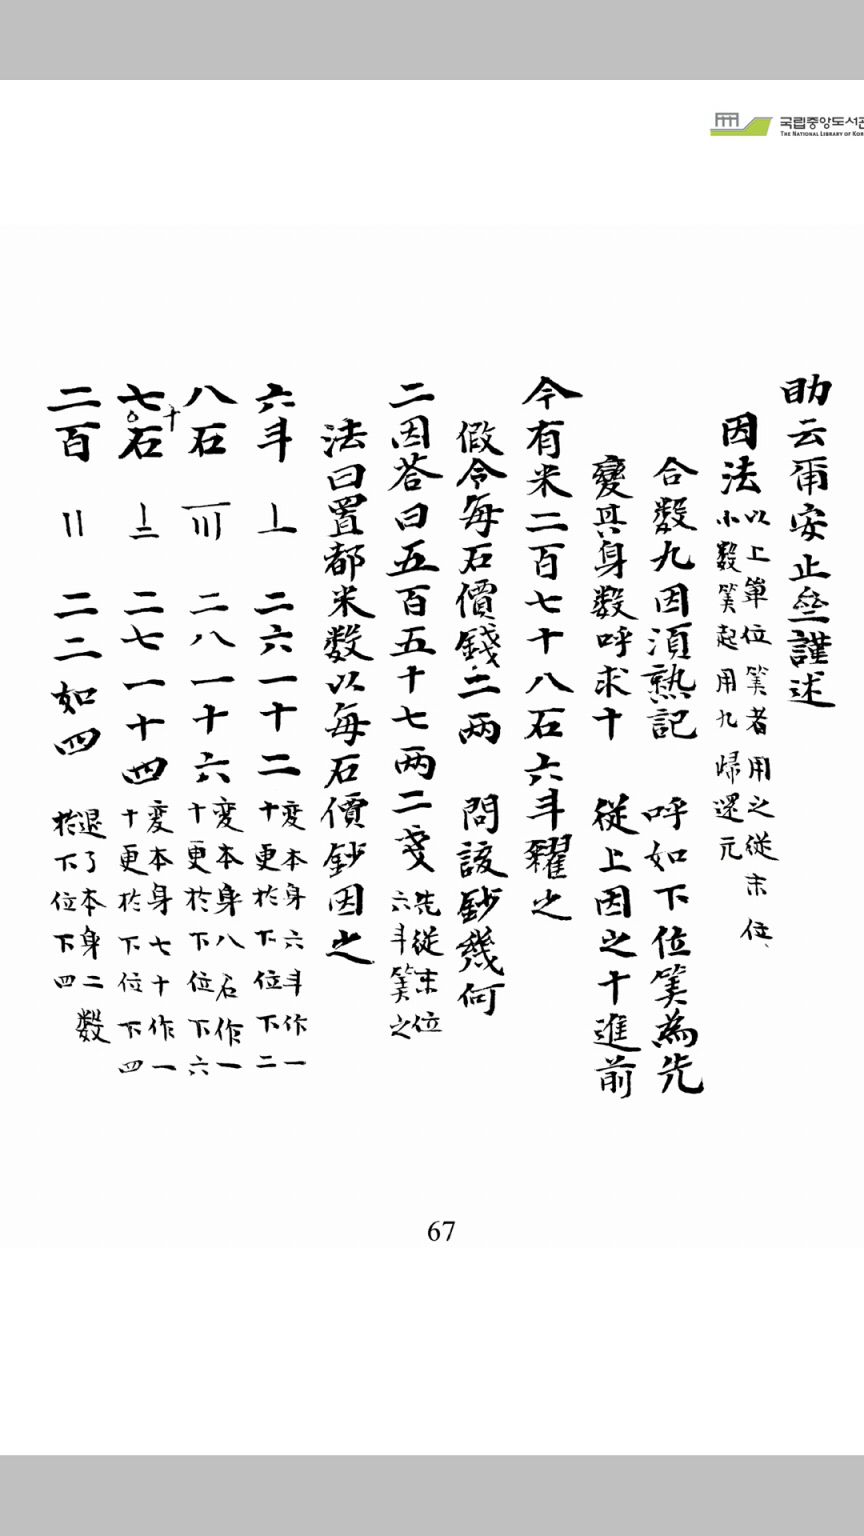 국립중앙도서관
THE NATIONAL LIBRARY OF KOR
助云爾安止齋謹述
因法 以上單位筭者用之從末位
小數筭起用九歸還元
合數九因須熟記 呼如下位筭為先
變其身數呼求十 從上因之十進前
今有米二百七十八石六斗糶之
假令每石價錢二兩 問該鈔幾何
二因答曰五百五十七兩二戔 先從末位
六斗筭之
法曰置都米數以每石價鈔因之
六斗 〦 二六一十二 変本身六斗作一
十更於下位下二
八石 〨 二八一十六 変本身八石作一
十更於下位下六
七十石 〧 二七一十四 変本身七十作一
十更於下位下四
二百 〢 二二如四 退了本身二數
於下位下四
67